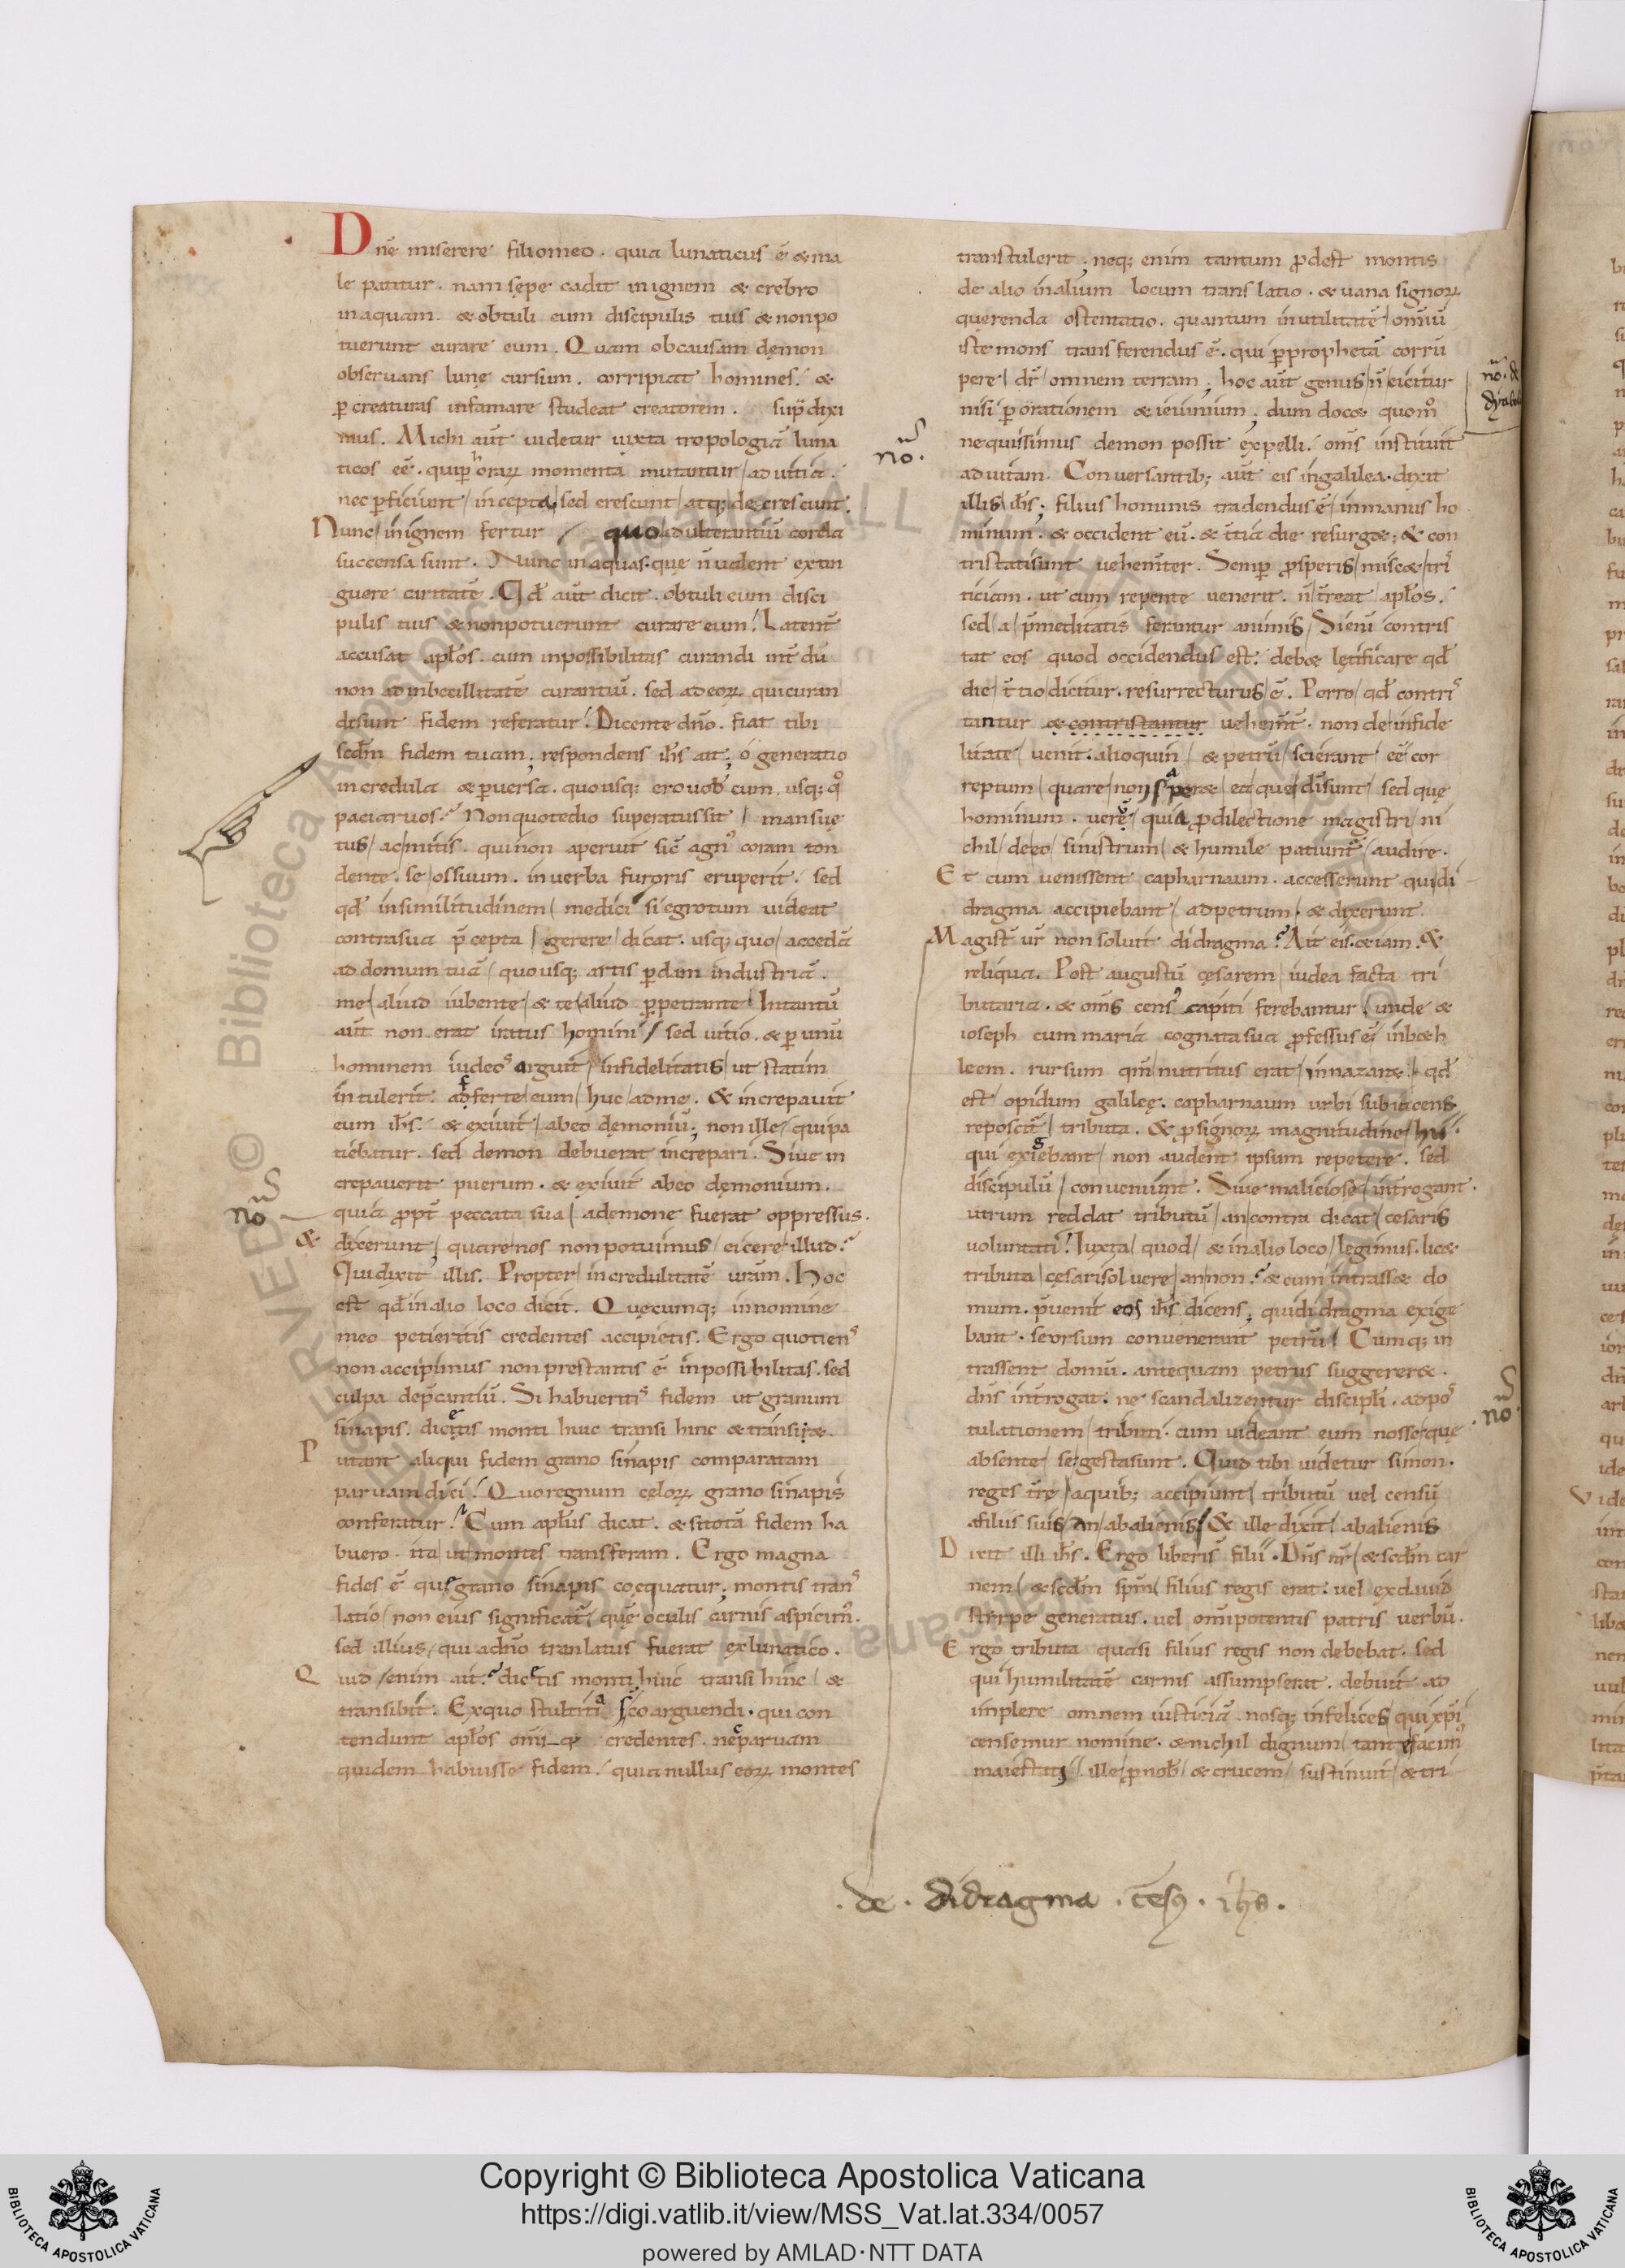 Dn̄e miserere filio meo. quia lunaticus ē & ma
le patitur. nam sępe cadit in ignem & crebro
in aquam. & obtuli eum discipulis tuis & non po
tuerunt curare eum. Quam ob causam dęmon
observans lunę cursum. corripiat homines. &
ꝑ creaturas infamare studeat creatorem. sup̄ dixi
mus. Michi aūt videtur iuxta tropologiā luna
ticos eē. qui ꝑ horaꝝ momenta mutantur ad vitia.
nec ꝑficiunt incepta, sed crescunt atq; decrescunt.
Nunc in ignem fertur quo adulterantiū corda
succensa sunt. Nunc in aquas. quę n̄ valent extin
guere caritatē. Qd̄ aūt dicit. obtuli eum disci
pulis tuis & non potuerunt curare eum. Latent̄
accusat apl̄os. cum inpossibilitas curandi int̄dū
non ad inbecillitatē curantiū. sed ad eoꝝ qui curan
di sunt fidem referatur. Dicente dn̄o. fiat tibi
scd̄m fidem tuam; respondens ih̄s ait; o generatio
incredula & ꝑversa. quousq; ero vob̄ cum. usq; q̊
paciar vos? Non quo tedio superatus sit mansuę
tus ac mitis. qui non aperuit sic̄ agn᾽ coram ton
dente. se os suum. in verba furoris eruperit. sed
qd̄ in similitudinem medici si egrotum videat
contra sua p̄cepta gerere dicat. usq; quo accedā
ad domum tuā quousq; artis ꝑdam industriā.
me aliud iubente & te aliud ꝑpetrante. In tantū
aūt non erat iratus homini sed vitio. & ꝑ unū
hominem iudeos arguit infidelitatis ut statim
intulerit. adferte eum huc ad me. & increpavit
eum ih̄s. & exivit ab eo dęmoniū; non ille qui pa
tiebatur. sed demon debuerat increpari. Sive in
crepaverit puerum. & exivit ab eo dęmonium.
no
quia ꝓpt̄ peccata sua a demone fuerat oppressus.
& dicerunt, quare nos non potuimus eicere illud?
Qui dixit illis. Propter incredulitatē vr̄am. Hoc
est qd̄ in alio loco dicit. Quęcumq; in nomine
meo petieritis credentes accipietis. Ergo quotiens
non accipimus non prestantis ē inpossibilitas. sed
culpa dep̄cantiū. Si habueritis fidem ut granum
sinapis. dicetis monti huic transi hinc & transi&.
Putant aliqui fidem grano sinapis comparatam
parvam dici. Quo regnum cęloꝝ grano sinapis
conferatur. Cum apl̄us dicat. & si totā fidem ha
buero. ita ut montes transferam. Ergo magna
fides ē quę grano sinapis coęquatur; montis trans
latio non eius significat̄ quę oculis carnis aspicim᾽.
sed illius, qui a dn̄o tranlatus fuerat ex lunatico.
Quid enim ait? dicetis monti huic transi hinc &
transibit. Ex quo stultitia coarguendi. qui con
tendunt apl̄os credentes. nec parvam
quidem habuisse fidem. quia nullus eoꝝ montes
transtulerit; neq; enim tantum ꝓdest montis
de alio in alium locum translatio. & vana signoꝝ
quęrenda ostentatio. quantum in utilitatē omniū
iste mons transferendus ē. qui ꝑ prophetā corrū
pere dr̄ omnem terram; hoc aūt genus n̄ eicitur
no.
nisi ꝑ orationem & ieiunium; dum doc& quom̊
no.
nequissimus demon possit expelli. om̄s instituit
ad vitam. Conversantib; aūt eis in galilea. dixit
illis ih̄s; filius hominis tradendus ē in manus ho
minum. & occident eū. & t̄tia die resurg&; & con
tristati sunt vehem̄ter. Semp̄ ꝓsperis misc& tri
ticiam. ut cum repente venerit. n̄ t̄reat apl̄os.
sed a p̄meditatis ferantur animis. Si eni contris
tat eos quod occidendus est. deb& lętificare qd̄
die t̄tio dicitur. resurrecturus ē. Porro qd̄ contris
tantur & contristantur vehem̄t. non de infide
litate venit. alioquin & petrū scierant eē cor
reptum quare non saper& ea que dī sunt sed quę
hominum. verę quia ꝓ dilectione magistri ni
chil de eo sinistrum & humile patiunt̄ audire.
Et cum venissent capharnaum. accesserunt qui di
dragma accipiebant ad petrum. & dixerunt.
Magist̄ vr̄ non solvit didragma? Ait eis. etiam. &
reliqua. Post augustū cęsarem iudea facta tri
butaria. & om̄s cens᾽ capiti ferebantur unde &
ioseph cum maria cognata sua ꝓfessus ē in b&h
leem. rursum qm̄ nutritus erat in nazar&. qd̄
est opidum galileę. capharnaum urbi subiacens
reposcit̄ tributa. & ꝓ signoꝝ magnitudine hii.
qui exigebant non audent ipsum repetere. sed
discipulū conveniunt. Sive maliciose int̄rogant.
utrum reddat tributū an contra dicat cesaris
voluntati. Iuxta quod & in alio loco legimus. lic&
tributa cęsari solvere an non? & cum intrass& do
mum. p̄venit eos ih̄s dicens; qui didragma exige
bant. seorsum convenerant petrū. Cumq; in
trassent domū. antequam petrus suggerer&.
dn̄s int̄rogat. ne scandalizentur discipl̄i. ad pos
no.
tulationem tributi. cum videant eum nosse quę
absente se gesta sunt. Quid tibi videtur simon.
reges t̄rę a quib; accipiunt tributū vel censū
a filiis suis an ab alienis. & ille dixit ab alienis
Dixit illi ih̄s. Ergo liberi s̄ filii. Dn̄s nr̄ & scd̄m car
nem & scd̄m spm̄ filius regis erat. vel ex david
stirpe generatus. vel omīpotentis patris verbū.
Ergo tributa quasi filius regis non debebat. sed
qui humilitatē carnis assumpserat. debuit ad
implere omnem iusticiā. nosq; infelices qui xp̄i
censemur nomine. & nichil dignum tantę facim᾽
maiestati ille ꝓ nob̄ & crucem sustinuit & tri
.de. didragma . cēsꝰ . ih̄s.
Copyright © Biblioteca Apostolica Vaticana
https://digi.vatlib.it/view/MSS_Vat.lat.334/0057
powered by AMLAD·NTT DATA
BIBLIOTECA APOSTOLICA VATICANA
BIBLIOTECA APOSTOLICA VATICANA